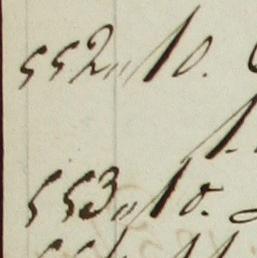 552 " 10.
1.
553 " 10.